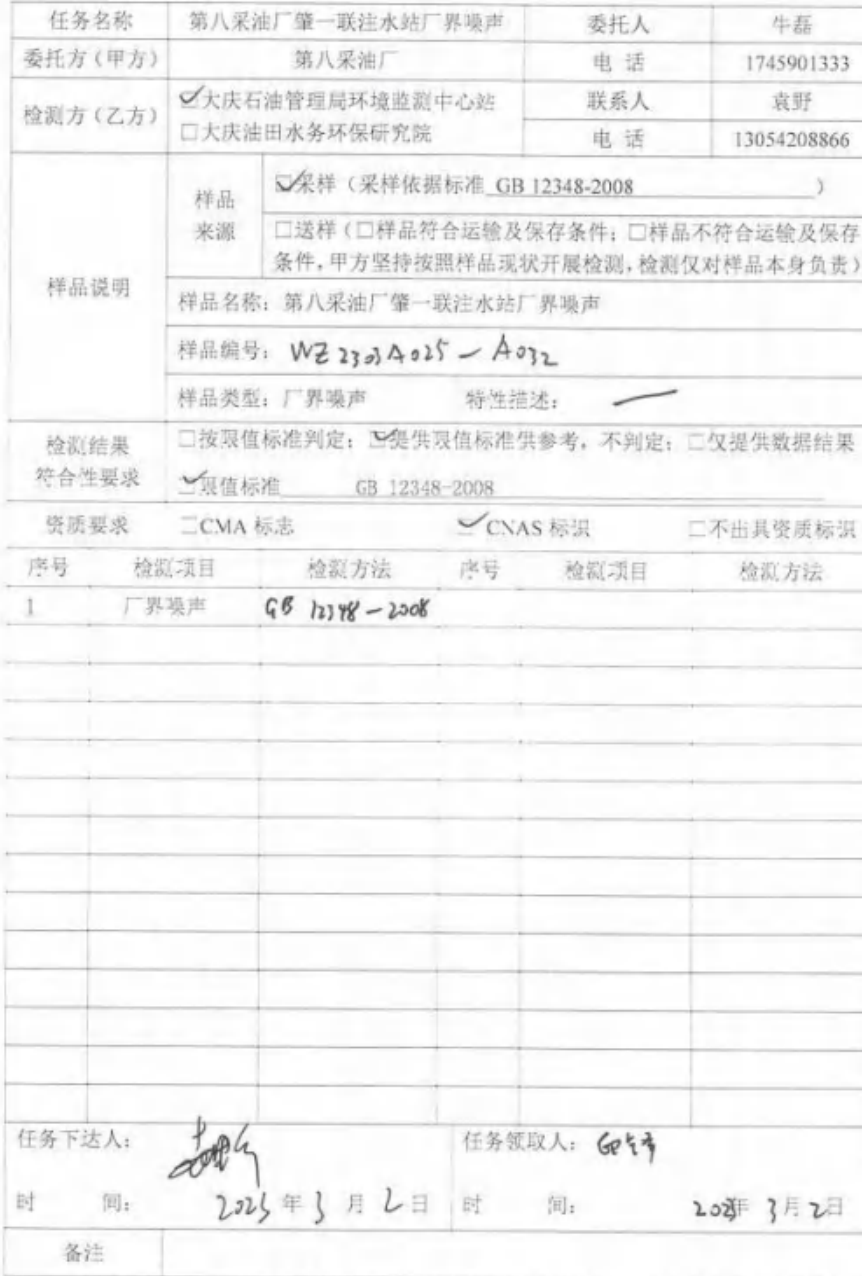 任务名称 第八采油厂肇一联注水站厂界噪声 委托人 牛磊
委托方（甲方） 第八采油厂 电 话 1745901333
检测方（乙方） ☑大庆石油管理局环境监测中心站 联系人 袁野
□大庆油田水务环保研究院 电 话 13054208866
样品说明
样品来源
☑采样（采样依据标准 GB 12348-2008 ）
□送样（□样品符合运输及保存条件；□样品不符合运输及保存
条件，甲方坚持按照样品现状开展检测，检测仅对样品本身负责）
样品名称：第八采油厂肇一联注水站厂界噪声
样品编号：WZ2303A025－A032
样品类型：厂界噪声 特性描述：—
检测结果
符合性要求
□按限值标准判定；☑提供限值标准供参考，不判定；□仅提供数据结果
☑限值标准 GB 12348-2008
资质要求 □CMA 标志 ☑CNAS 标识 □不出具资质标识
序号 检测项目 检测方法 序号 检测项目 检测方法
1 厂界噪声 GB 12348－2008
任务下达人： 任务领取人：
时 间： 2023 年 3 月 2 日 时 间： 2023年 3月2日
备注